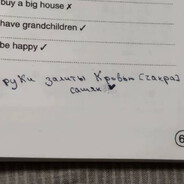 buy a big house ✗
have grandchildren ✓
be happy ✓
руки залиты кровью [гакра]
сашяк
6